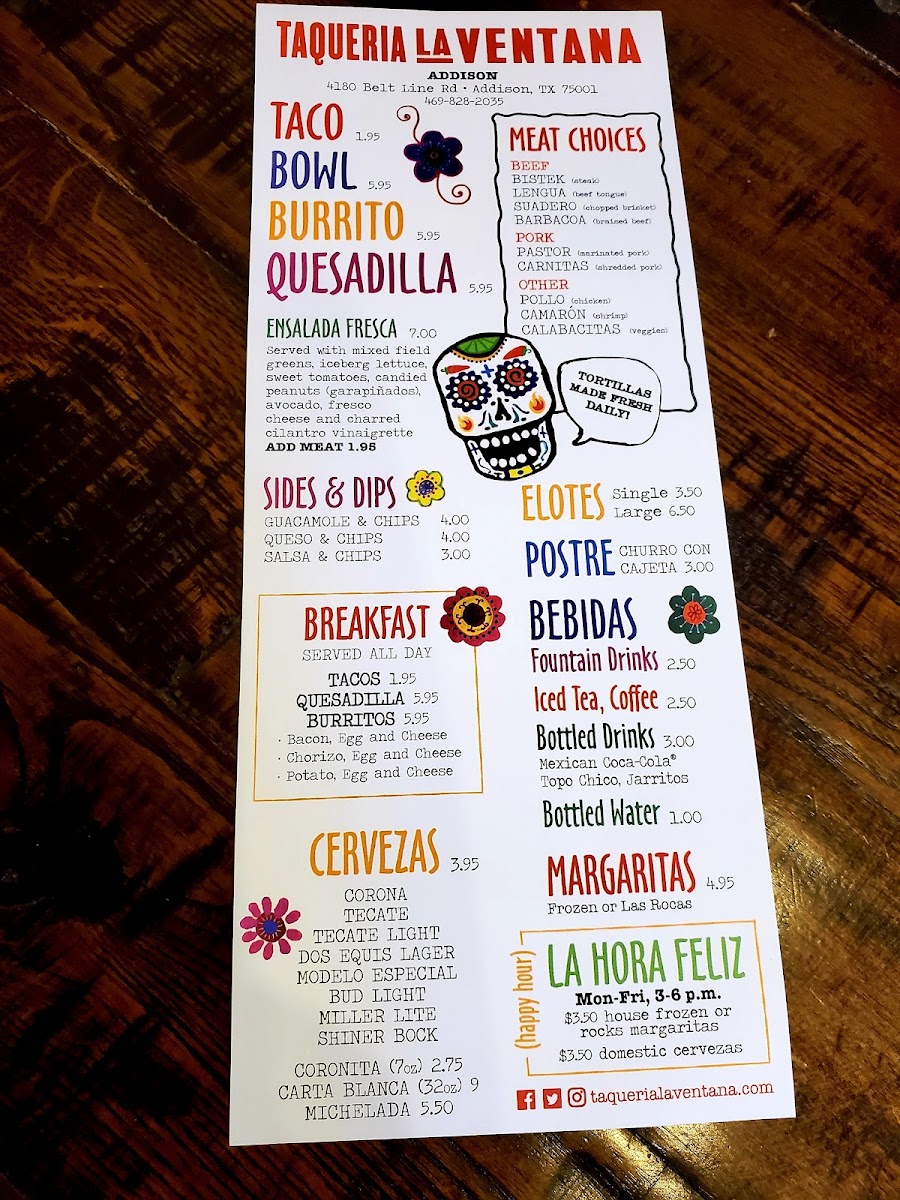 TAQUERIA LA VENTANA
ADDISON
4180 Belt Line Rd • Addison, TX 75001
469-828-2035
TACO 1.95
BOWL 5.95
BURRITO 5.95
QUESADILLA 5.95
ENSALADA FRESCA 7.00
Served with mixed field
greens, iceberg lettuce,
sweet tomatoes, candied
peanuts (garapiñados),
avocado, fresco
cheese and charred
cilantro vinaigrette
ADD MEAT 1.95
MEAT CHOICES
BEEF
BISTEK (steak)
LENGUA (beef tongue)
SUADERO (chopped brisket)
BARBACOA (braised beef)
PORK
PASTOR (marinated pork)
CARNITAS (shredded pork)
OTHER
POLLO (chicken)
CAMARÓN (shrimp)
CALABACITAS (veggies)
TORTILLAS
MADE FRESH
DAILY!
SIDES & DIPS
GUACAMOLE & CHIPS 4.00
QUESO & CHIPS 4.00
SALSA & CHIPS 3.00
ELOTES Single 3.50
Large 6.50
POSTRE CHURRO CON
CAJETA 3.00
BREAKFAST
SERVED ALL DAY
TACOS 1.95
QUESADILLA 5.95
BURRITOS 5.95
· Bacon, Egg and Cheese
· Chorizo, Egg and Cheese
· Potato, Egg and Cheese
BEBIDAS
Fountain Drinks 2.50
Iced Tea, Coffee 2.50
Bottled Drinks 3.00
Mexican Coca-Cola®
Topo Chico, Jarritos
Bottled Water 1.00
CERVEZAS 3.95
CORONA
TECATE
TECATE LIGHT
DOS EQUIS LAGER
MODELO ESPECIAL
BUD LIGHT
MILLER LITE
SHINER BOCK
CORONITA (7oz) 2.75
CARTA BLANCA (32oz) 9
MICHELADA 5.50
MARGARITAS 4.95
Frozen or Las Rocas
(happy hour)
LA HORA FELIZ
Mon-Fri, 3-6 p.m.
$3.50 house frozen or
rocks margaritas
$3.50 domestic cervezas
taquerialaventana.com